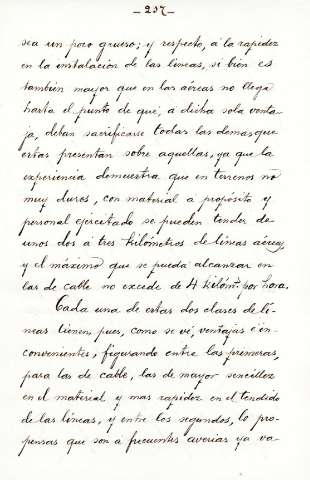 - 257 -
sea un poco grueso; y respecto, á la rapidez
en la instalación de las líneas, si bien es
tambien mayor que en las aéreas no llega
hasta el punto de que, á dicha sola venta-
ja, deban sacrificarse todas las demas que
estas presentan sobre aquellas, ya que la
experiencia demuestra que en terrenos no
muy duros, con material a propósito y
personal ejercitado se pueden tender de
unos dos á tres kilómetros de líneas aéreas,
y el máximo que se pueda alcanzar en
las de cable no excede de 4 kilóm.s por hora.
Cada una de estas dos clases de lí-
neas tienen, pues, como se vé, ventajas é in-
convenientes, figurando entre las primeras,
para las de cable, las de mayor sencillez
en el material y mas rapidez en el tendido
de las líneas, y entre los segundos, lo pro-
pensas que son a frecuentes averias ya va-